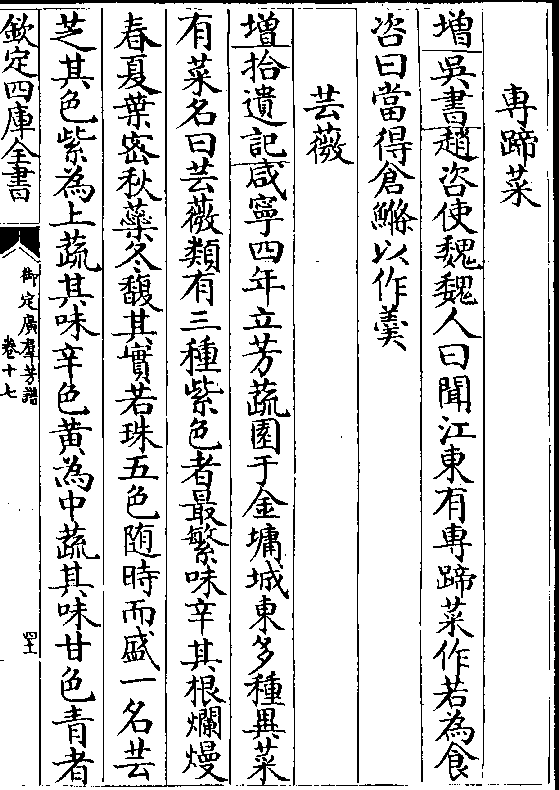 專蹄菜
增吳書趙咨使魏魏人曰聞江東有專蹄菜作若為食
咨曰當得倉鰷以作羮
芸薇
增拾遺記咸寧四年立芳蔬園于金墉城東多種異菜
有菜名曰芸薇類有三種紫色者最繁味辛其根爛熳
春夏葉密秋蘂冬馥其實若珠五色随時而盛一名芸
芝其色紫為上蔬其味辛色黄為中蔬其味甘色青者
欽定四庫全書
御定廣羣芳譜
卷十七